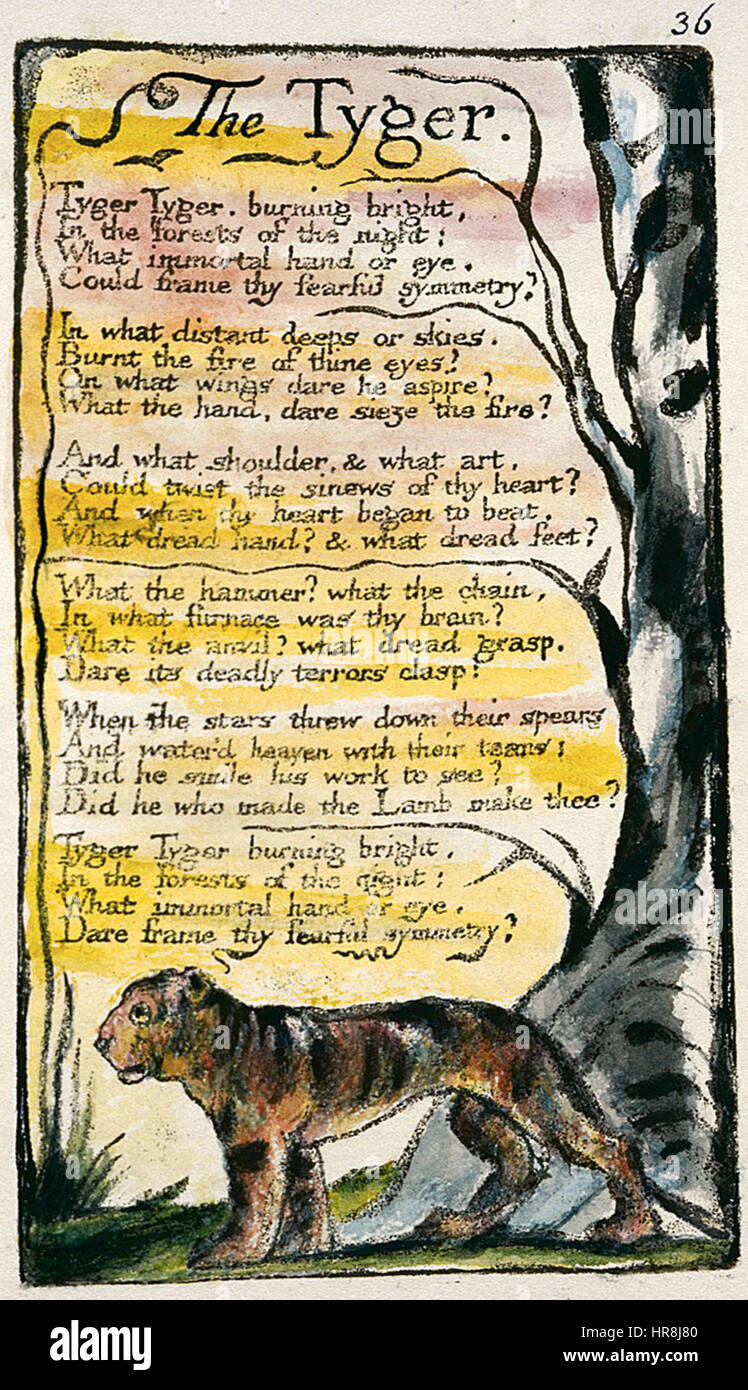 36
The Tyger.
Tyger Tyger. burning bright,
In the forests of the night;
What immortal hand or eye.
Could frame thy fearful symmetry?
In what distant deeps or skies.
Burnt the fire of thine eyes?
On what wings dare he aspire?
What the hand, dare sieze the fire?
And what shoulder, & what art,
Could twist the sinews of thy heart?
And when thy heart began to beat,
What dread hand? & what dread feet?
What the hammer? what the chain,
In what furnace was thy brain?
What the anvil? what dread grasp.
Dare its deadly terrors clasp!
When the stars threw down their spears
And water'd heaven with their tears:
Did he smile his work to see?
Did he who made the Lamb make thee?
Tyger Tyger burning bright,
In the forests of the night:
What immortal hand or eye,
Dare frame thy fearful symmetry?
alamy stock photo
HR8J80
www.alamy.com